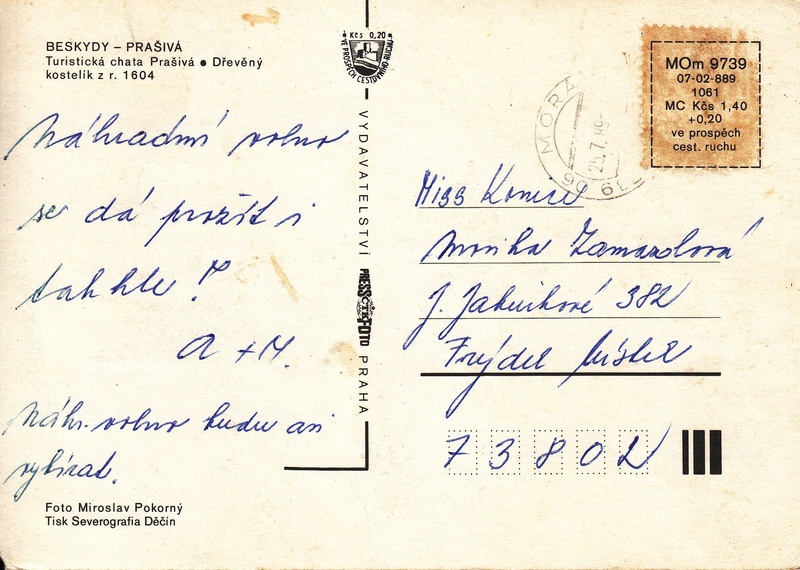 BESKYDY – PRAŠIVÁ
Turistická chata Prašivá • Dřevěný
kostelík z r. 1604
Náhradní volno
se dá prožít i
takhle!
A + M.
Náhr. volno budu asi
vybírat.
Foto Miroslav Pokorný
Tisk Severografia Děčín
Kčs 0,20
VE PROSPĚCH CESTOVNÍHO RUCHU
VYDAVATELSTVÍ
PRESSFOTO
ČTK
PRAHA
MOm 9739
07-02-889
1061
MC Kčs 1,40
+0,20
ve prospěch
cest. ruchu
Miss
Monika Zamazalová
J. Jabůrkové 382
Frýdek Místek
73802